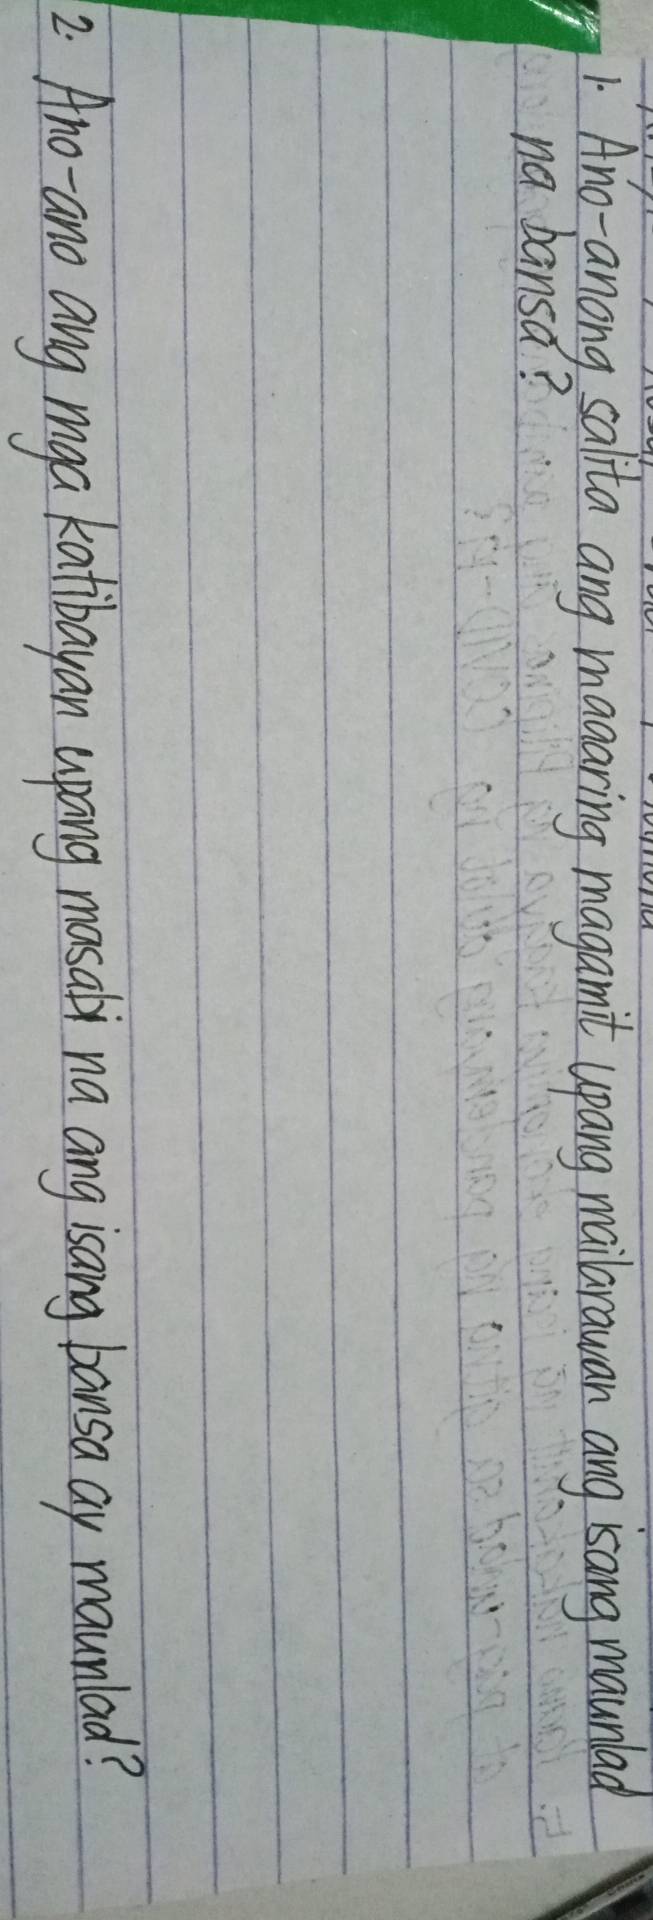 1. Ano-anong salita ang maaaring magamit upang mailarawan ang isang maunlad
na bansa?
2. Ano-ano ang mga katibayan upang masabi na ang isang bansa ay maunlad?